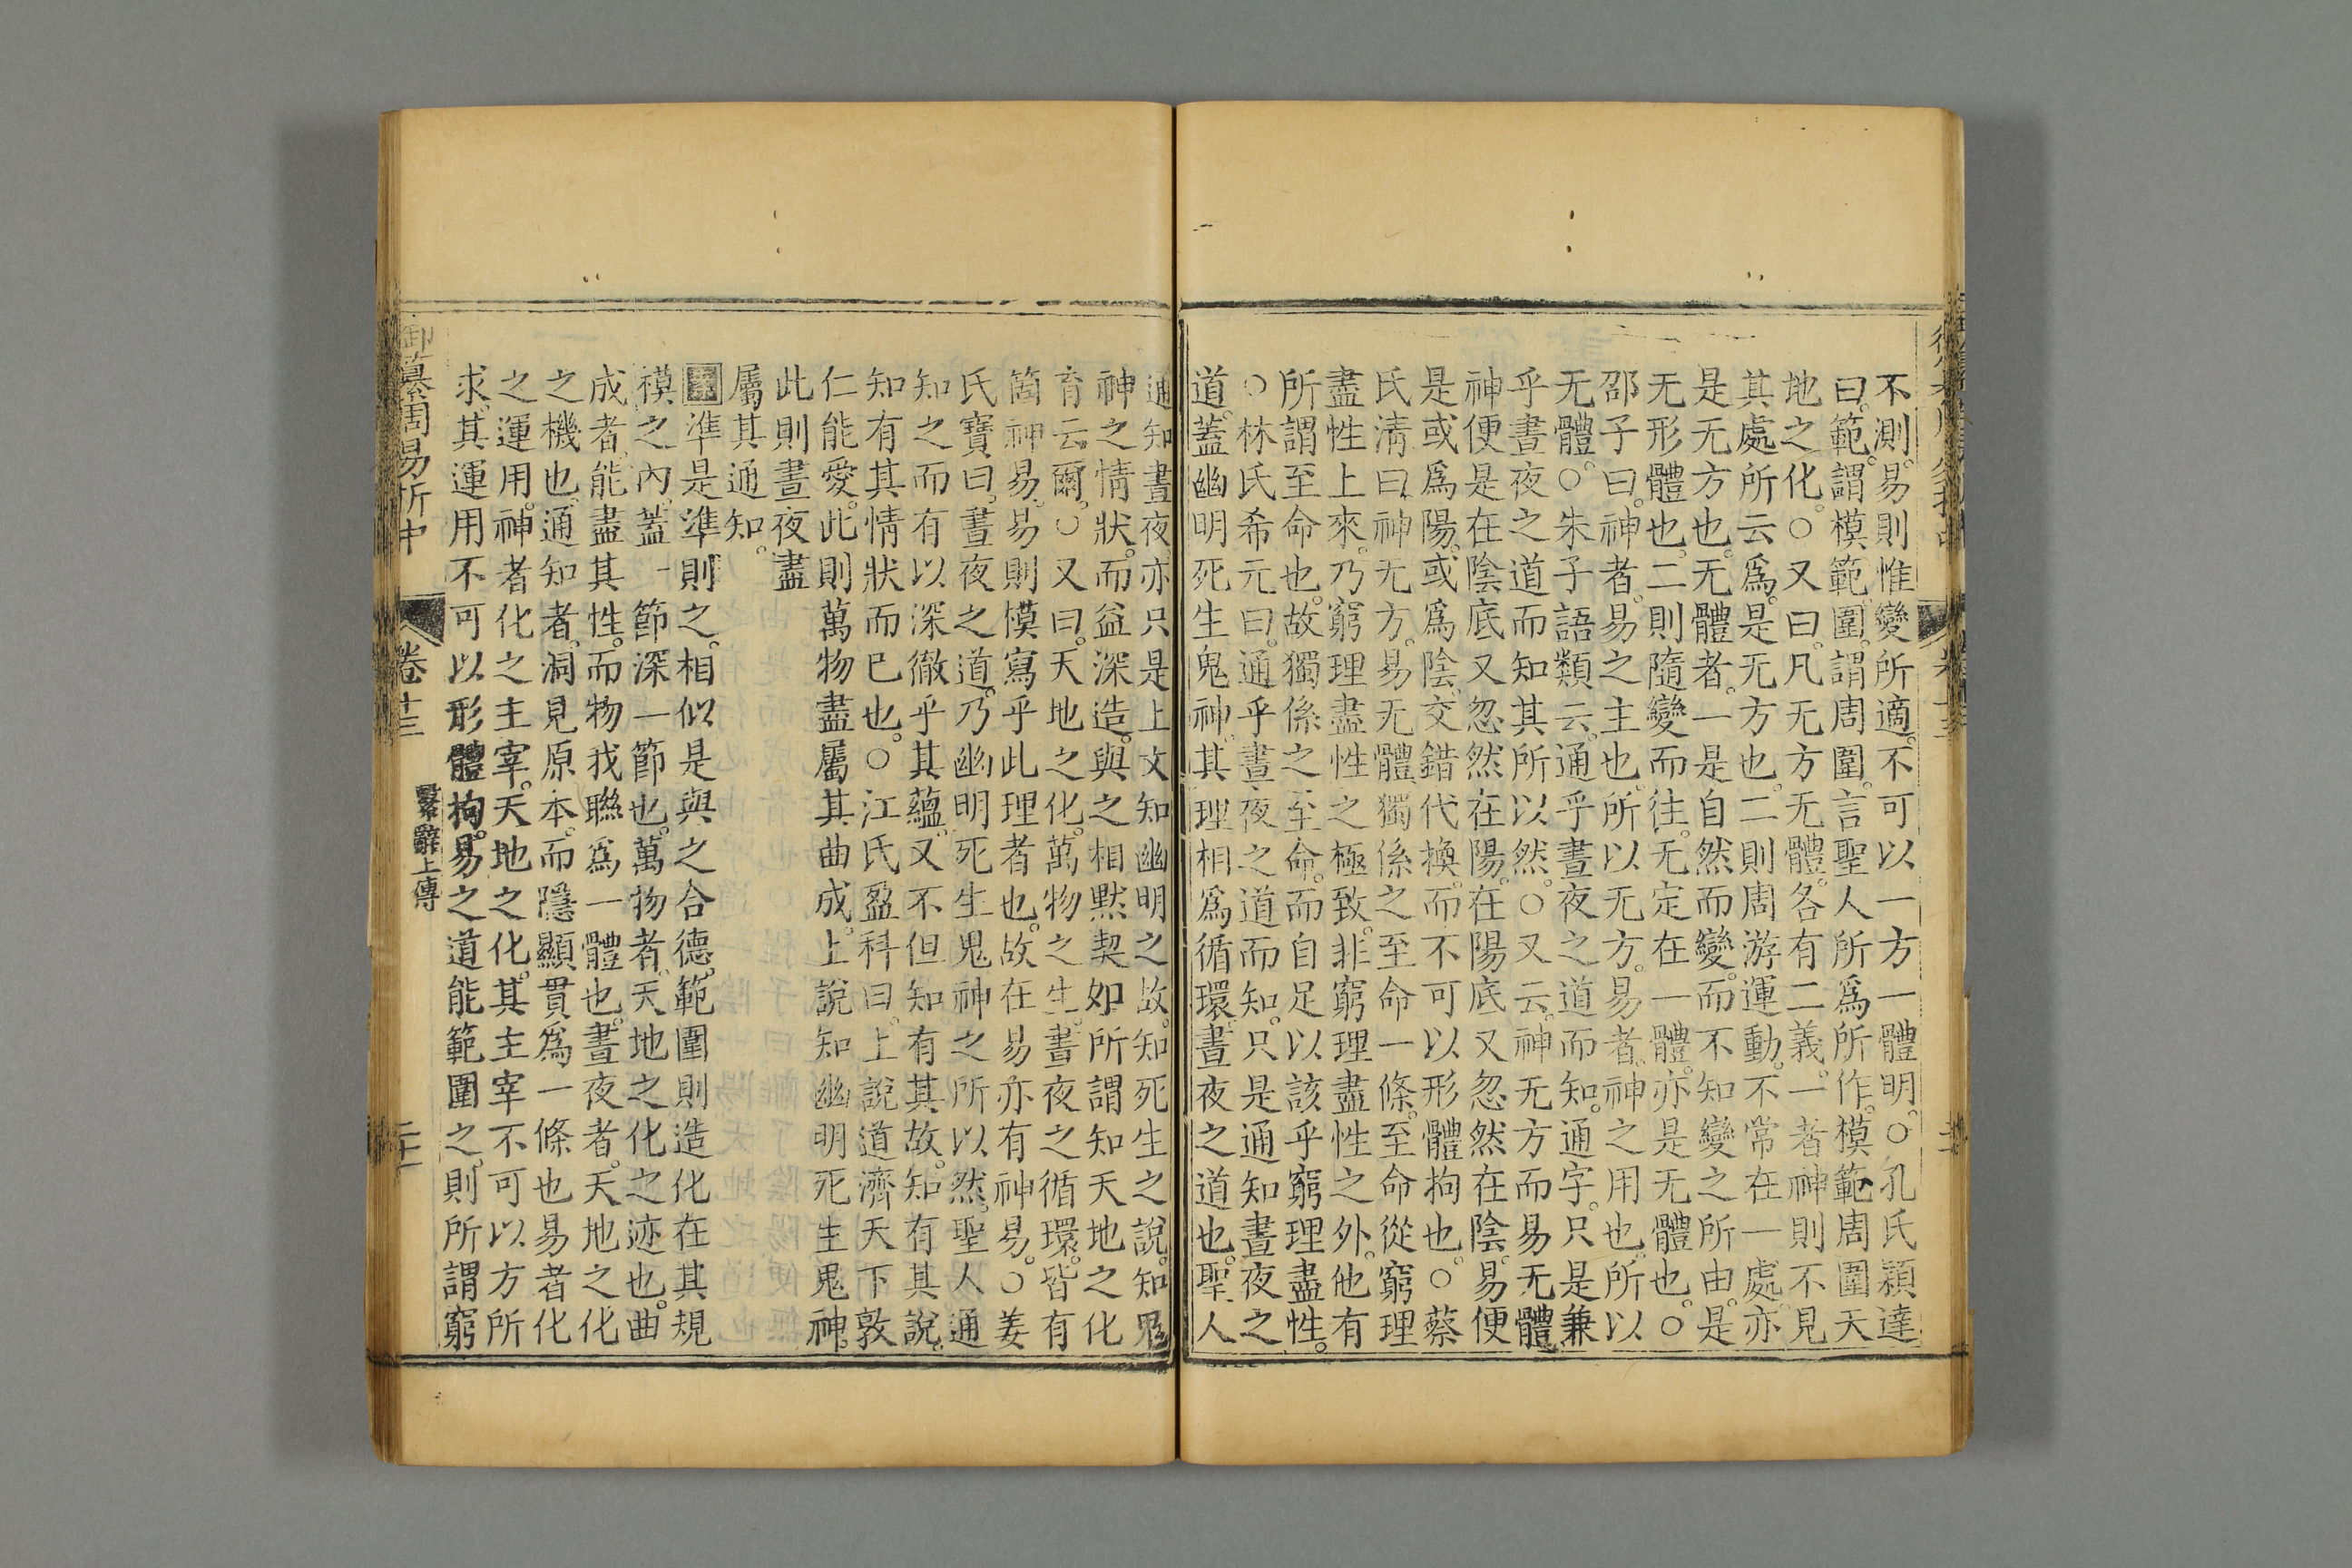 不測。易則惟變所適。不可以一方一體明。○孔氏穎達
曰。範。謂模範。圍。謂周圍。言聖人所爲所作。模範周圍天
地之化。○又曰。凡无方无體。各有二義。一者神則不見
其處所云爲。是无方也。二則周游運動。不常在一處。亦
是无方也。无體者。一是自然而變。而不知變之所由。是
无形體也。二則隨變而往。无定在一體。亦是无體也。○
邵子曰。神者。易之主也。所以无方。易者。神之用也。所以
无體。○朱子語類云。通乎晝夜之道而知。通字。只是兼
乎晝夜之道而知其所以然。○又云。神无方而易无體。
神便是在陰底又忽然在陽。在陽底又忽然在陰。易便
是或爲陽。或爲陰。交錯代換。而不可以形體拘也。○蔡
氏淸曰。神无方。易无體。獨係之至命一條。至命從窮理
盡性上來。乃窮理盡性之極致。非窮理盡性之外。他有
所謂至命也。故獨係之至命。而自足以該乎窮理盡性。
○林氏希元曰。通乎晝夜之道而知。只是通知晝夜之
道。蓋幽明死生鬼神。其理相爲循環。晝夜之道也。聖人
通知晝夜。亦只是上文知幽明之故。知死生之說。知鬼
神之情狀。而益深造。與之相默契。如所謂知天地之化
育云爾。○又曰。天地之化。萬物之生。晝夜之循環。皆有
箇神易。易則模寫乎此理者也。故在易亦有神易。○姜
氏寶曰。晝夜之道。乃幽明死生鬼神之所以然。聖人通
知之而有以深徹乎其蘊。又不但知有其故。知有其說。
知有其情狀而已也。○江氏盈科曰。上說道濟天下敦
仁能愛。此則萬物盡屬其曲成。上說知幽明死生鬼神。
此則晝夜盡
屬其通知。
準是準則之。相似是與之合德。範圍則造化在其規
模之內。蓋一節深一節也。萬物者。天地之化之迹也。曲
成者。能盡其性。而物我聯爲一體也。晝夜者。天地之化
之機也。通知者。洞見原本。而隱顯貫爲一條也易者化
之運用。神者化之主宰。天地之化。其主宰不可以方所
求。其運用不可以形體拘。易之道能範圍之。則所謂窮
御纂周易折中 卷十三 繫辭上傳